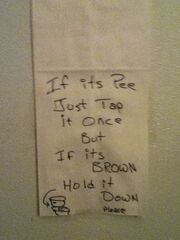 If its Pee
Just Tap
it Once
But
If its
BROWN
Hold it
DOWN
Please